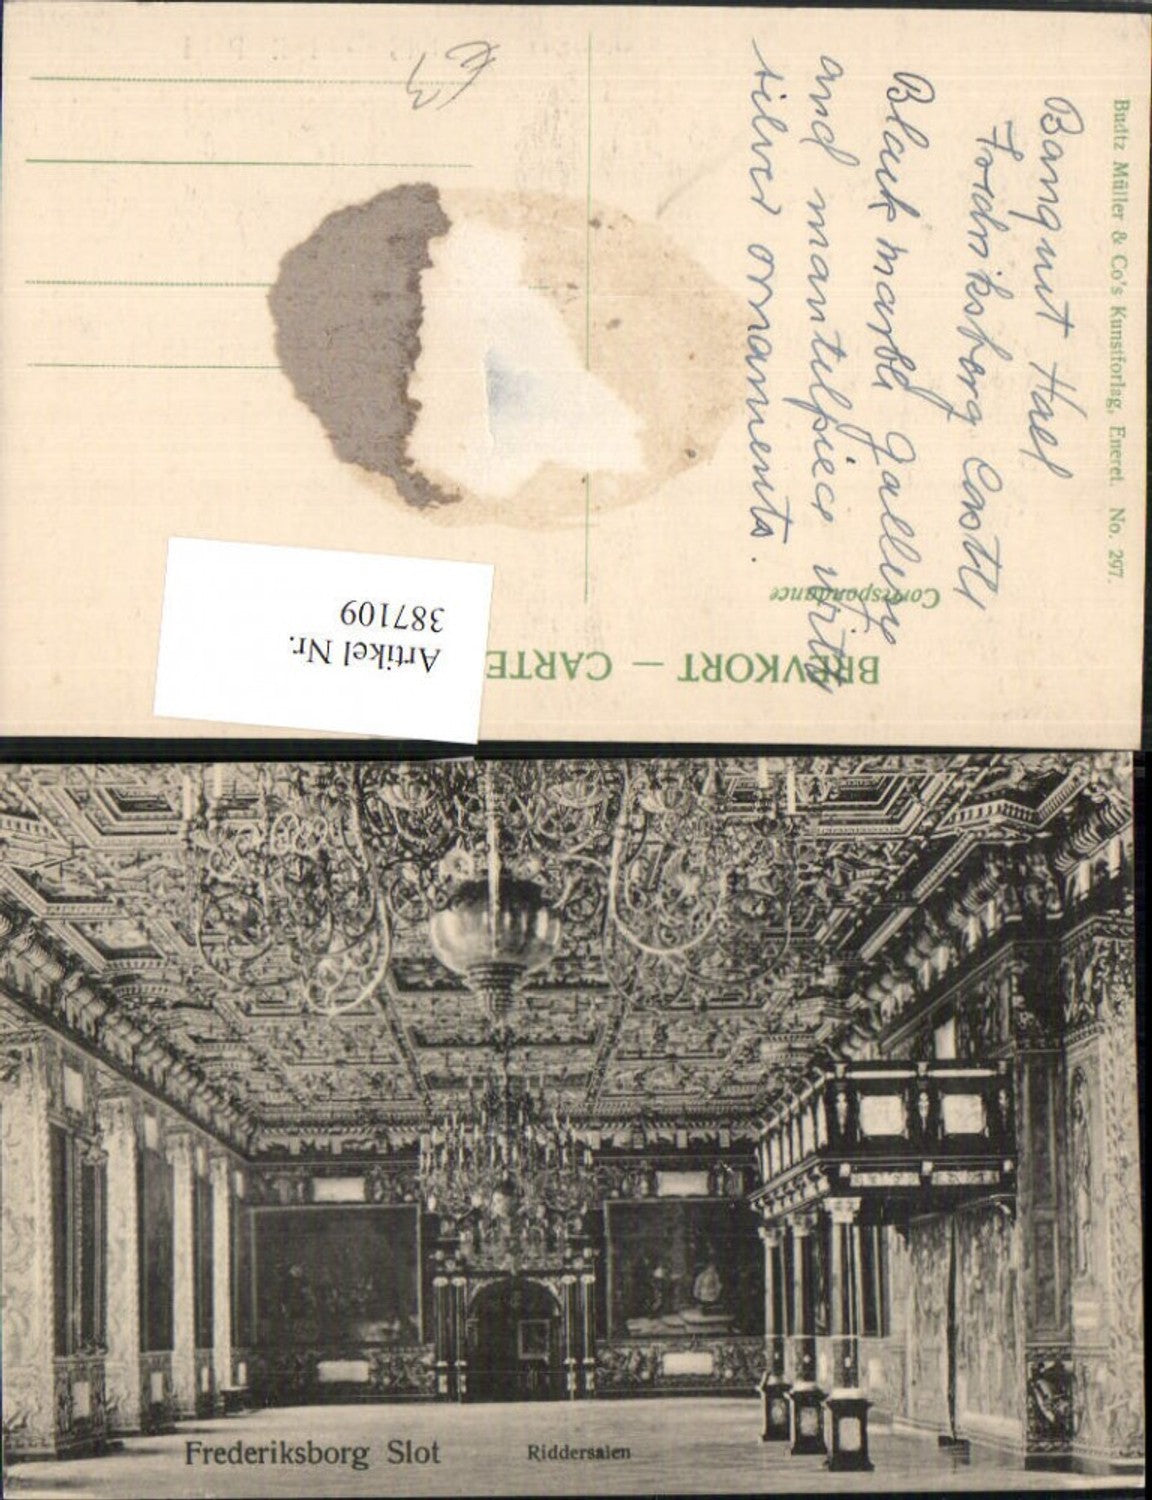 Budtz Müller & Co's Kunstforlag, Eneret. No. 297.
Banquet Hall
Fredriksborg Castle
Black marble Gallery
and mantelpiece with
silver ornaments.
Correspondance
BREVKORT — CARTE
Artikel Nr.
387109
Frederiksborg Slot
Riddersalen